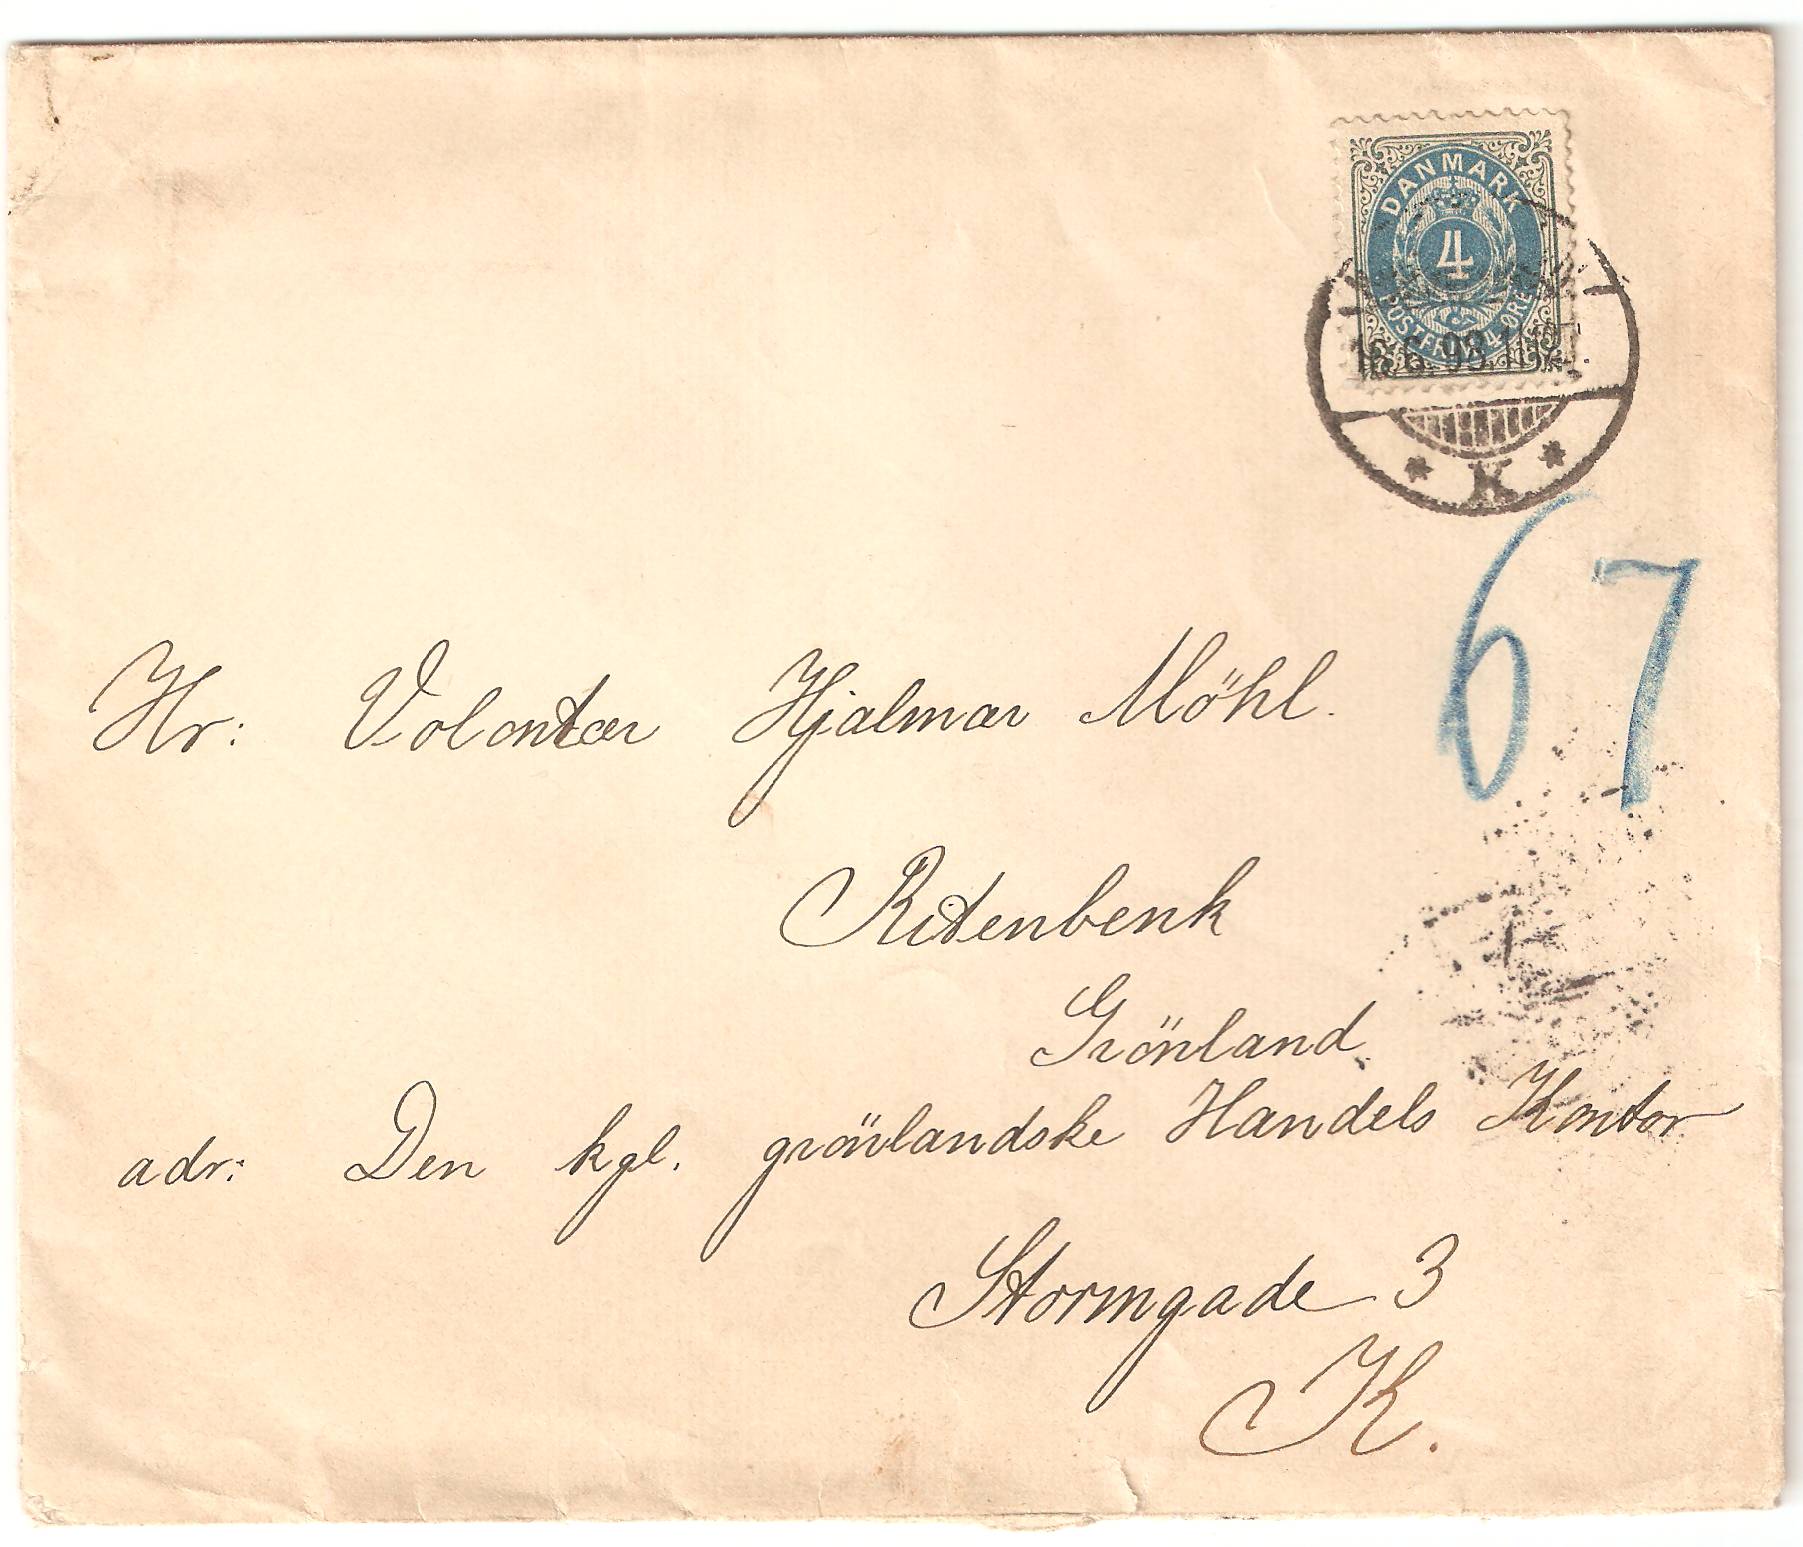 DANMARK
4
POSTFRIM. 4 ØRE
K
67
Hr: Volontær Hjalmar Möhl.
Ritenbenk
Grönland
adr: Den kgl. grönlandske Handels Kontor
Stormgade 3
K.